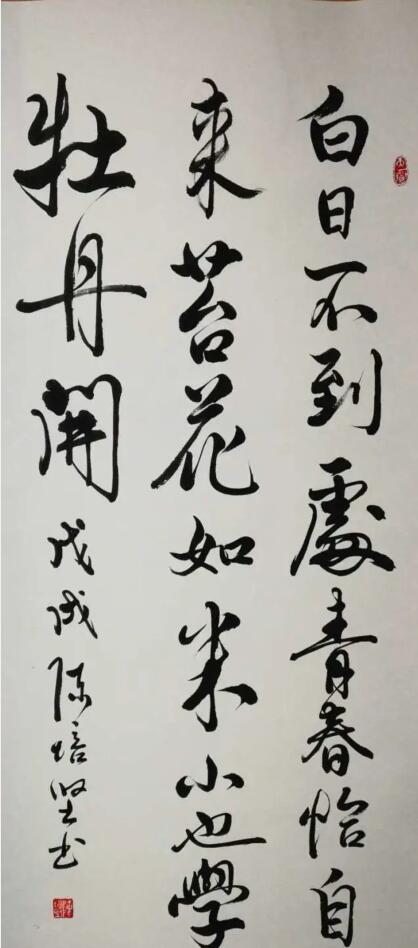 白日不到處青春恰自
來苔花如米小也學
牡丹開
戊戌陈培坚书